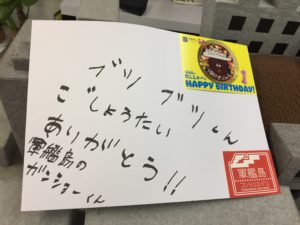 HAPPY BIRTHDAY!
ブツブツくん
ごしょうたい
ありがとう!!
軍艦島の
ガンショーくん
軍艦島